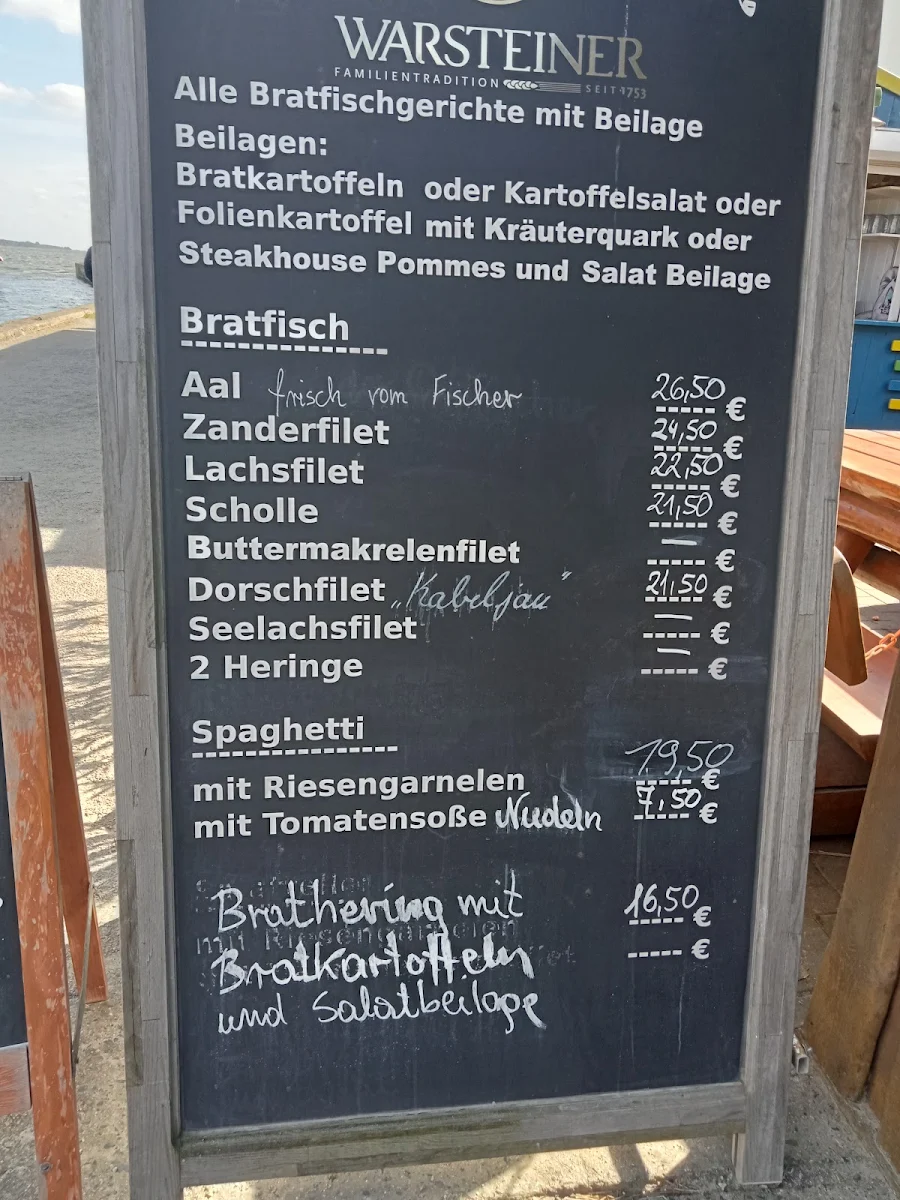 WARSTEINER
FAMILIENTRADITION SEIT 1753
Alle Bratfischgerichte mit Beilage
Beilagen:
Bratkartoffeln oder Kartoffelsalat oder
Folienkartoffel mit Kräuterquark oder
Steakhouse Pommes und Salat Beilage
Bratfisch
Aal frisch vom Fischer 26,50 €
Zanderfilet 24,50 €
Lachsfilet 22,50 €
Scholle 21,50 €
Buttermakrelenfilet — €
Dorschfilet „Kabeljau" 21,50 €
Seelachsfilet — €
2 Heringe — €
Spaghetti
mit Riesengarnelen 19,50 €
mit Tomatensoße Nudeln 7,50 €
Brathering mit 16,50 €
Bratkartoffeln €
und Salatbeilage